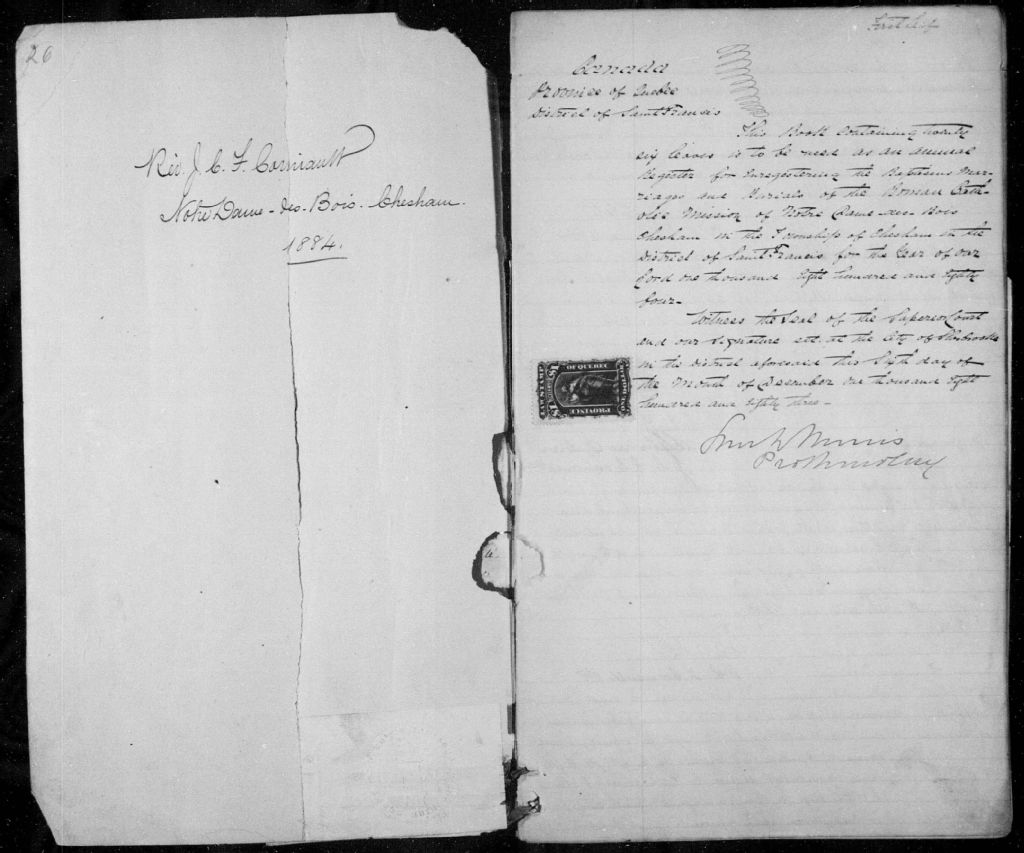 26
Rév. J. C. F. Corriault
Notre Dame-des-Bois. Chesham.
1884.
First leaf
Canada
Province of Quebec
District of Saint Francis
This Book Containing twenty
six leaves is to be used as an annual
Register for Enregistering the Baptisms Mar-
riages and Burials of the Roman Cath-
olic Mission of Notre Dame des Bois
Chesham in the Township of Chesham in the
District of Saint Francis for the Year of Our
Lord one thousand Eight hundred and Eighty
four-
Witness the Seal of the Superior Court
and our Signature at the City of Sherbrooke
in the District aforesaid this day of
the Month of December one thousand Eight
hundred and Eighty three-
LAW STAMP
OF QUEBEC
$1
$1
ONE DOLLAR
PROVINCE
Prothonotary